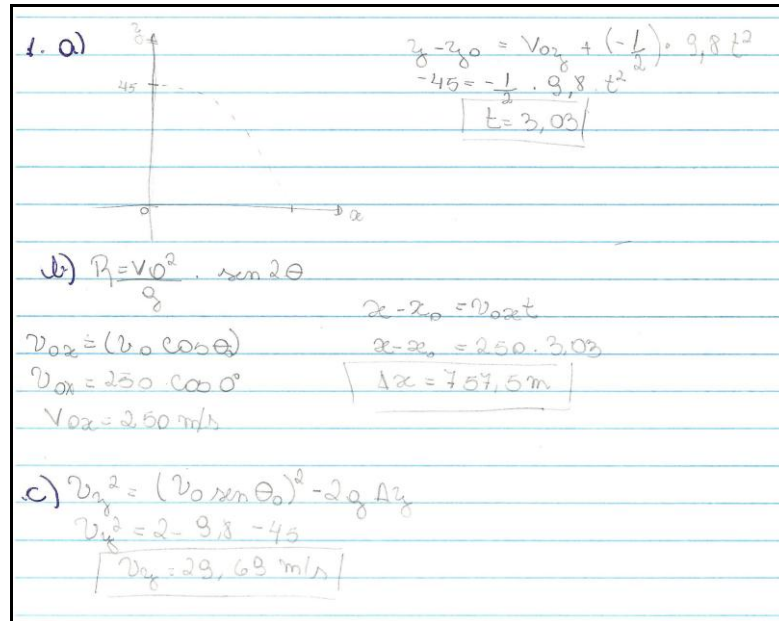 1. a)
y
45
0
x
y - y₀ = V₀y + (-1/2) · 9,8 t²
-45 = -1/2 · 9,8 · t²
t = 3,03
b) R = V0²/g · sen 2θ
v₀x = (v₀ cos θ₀)
v₀x = 250 cos 0°
V₀x = 250 m/s
x - x₀ = v₀x t
x - x₀ = 250 · 3,03
Δx = 757,5 m
c) Vy² = (v₀ sen θ₀)² - 2g Δy
Vy² = 2 - 9,8 - 45
Vy = 29,69 m/s